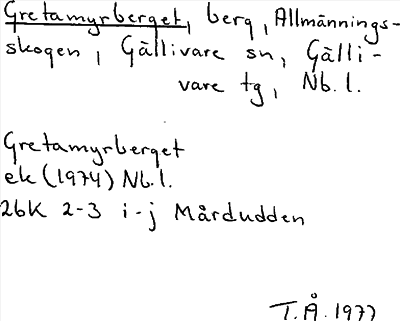 Gretamyrberget, berg, Allmännings-
skogen, Gällivare sn, Gälli-
vare tg, Nb.l.
Gretamyrberget
ek (1974) Nb.l.
26K 2-3 i-j Mårdudden
T.Å. 1977